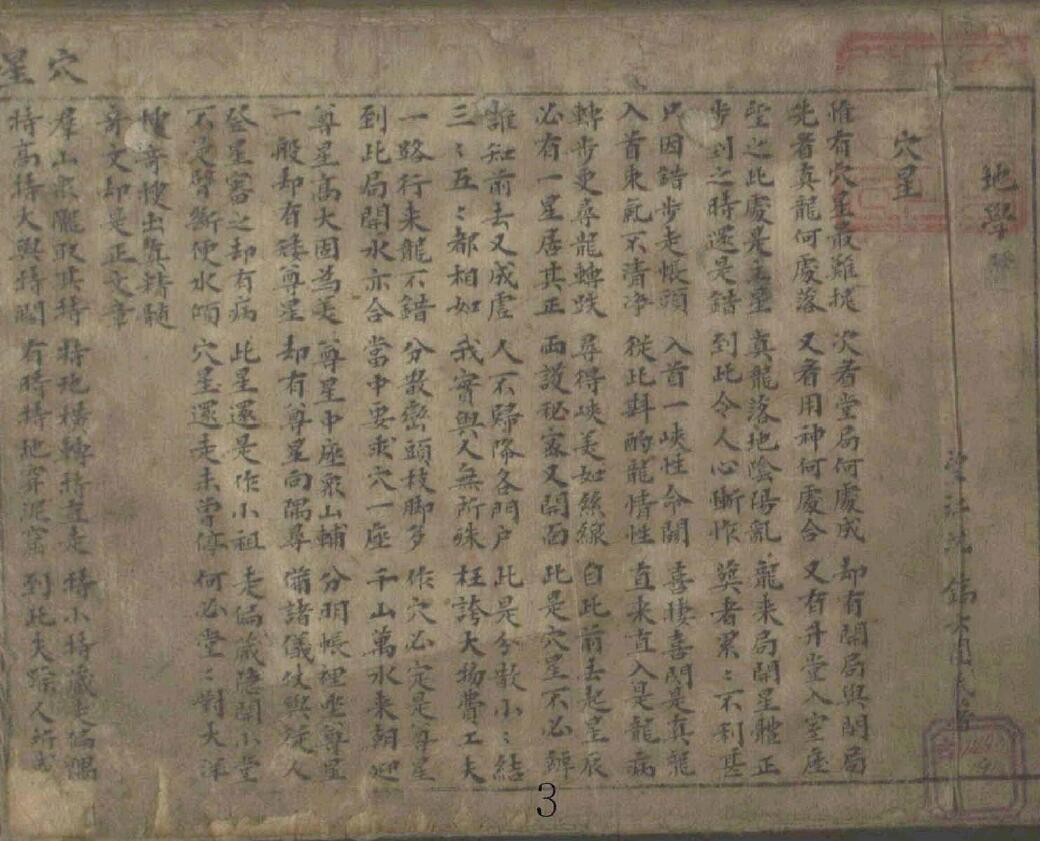 地學
穴星
惟有穴星最難捉 次看堂局何處成 却有開局與閉局
先看真龍何處落 又看用神何處合 又有升堂入室座
望之此處是主星 真龍落地陰陽亂 龍来局開星體正
步到之時還是錯 到此令人心慚怍 葬者累〻不利甚
只因錯步走帳頭 入首一峽性命關 喜接喜閃是真龍
入首束氣不清净 從此斟酌龍情性 直来直入是龍病
轉步更尋龍轉跌 尋得峽美如絲線 自此前去起星辰
必有一星居其正 両護秘密又開面 此是穴星不必辨
誰知前去又成虚 人不歸降各門户 此是分散小〻結
三〻五〻都相如 我實與人無所殊 枉誇大物費工夫
一路行来龍不錯 分散巒頭枝脚多 作穴必定是尊星
到此局開水亦合 當中要求穴一座 千山萬水来朝迎
尊星高大固為美 尊星中座眾山輔 分明帳裡坐尊星
一般却有矮尊星 却有尊星向隅尋 備諸儀仗與從人
登星審之却有病 此星還是作小祖 走偏藏隱開小堂
不是聲斷便水傾 穴星還走未曾停 何必堂〻對大洋
搜奇搜出真精髓
奇文却是正文章
群山眾隴取其特 特地橫轉特直走 特小特藏走偏隅
特高特大與特闊 有時特地穿泥窩 到此失踪人所
穴星
3